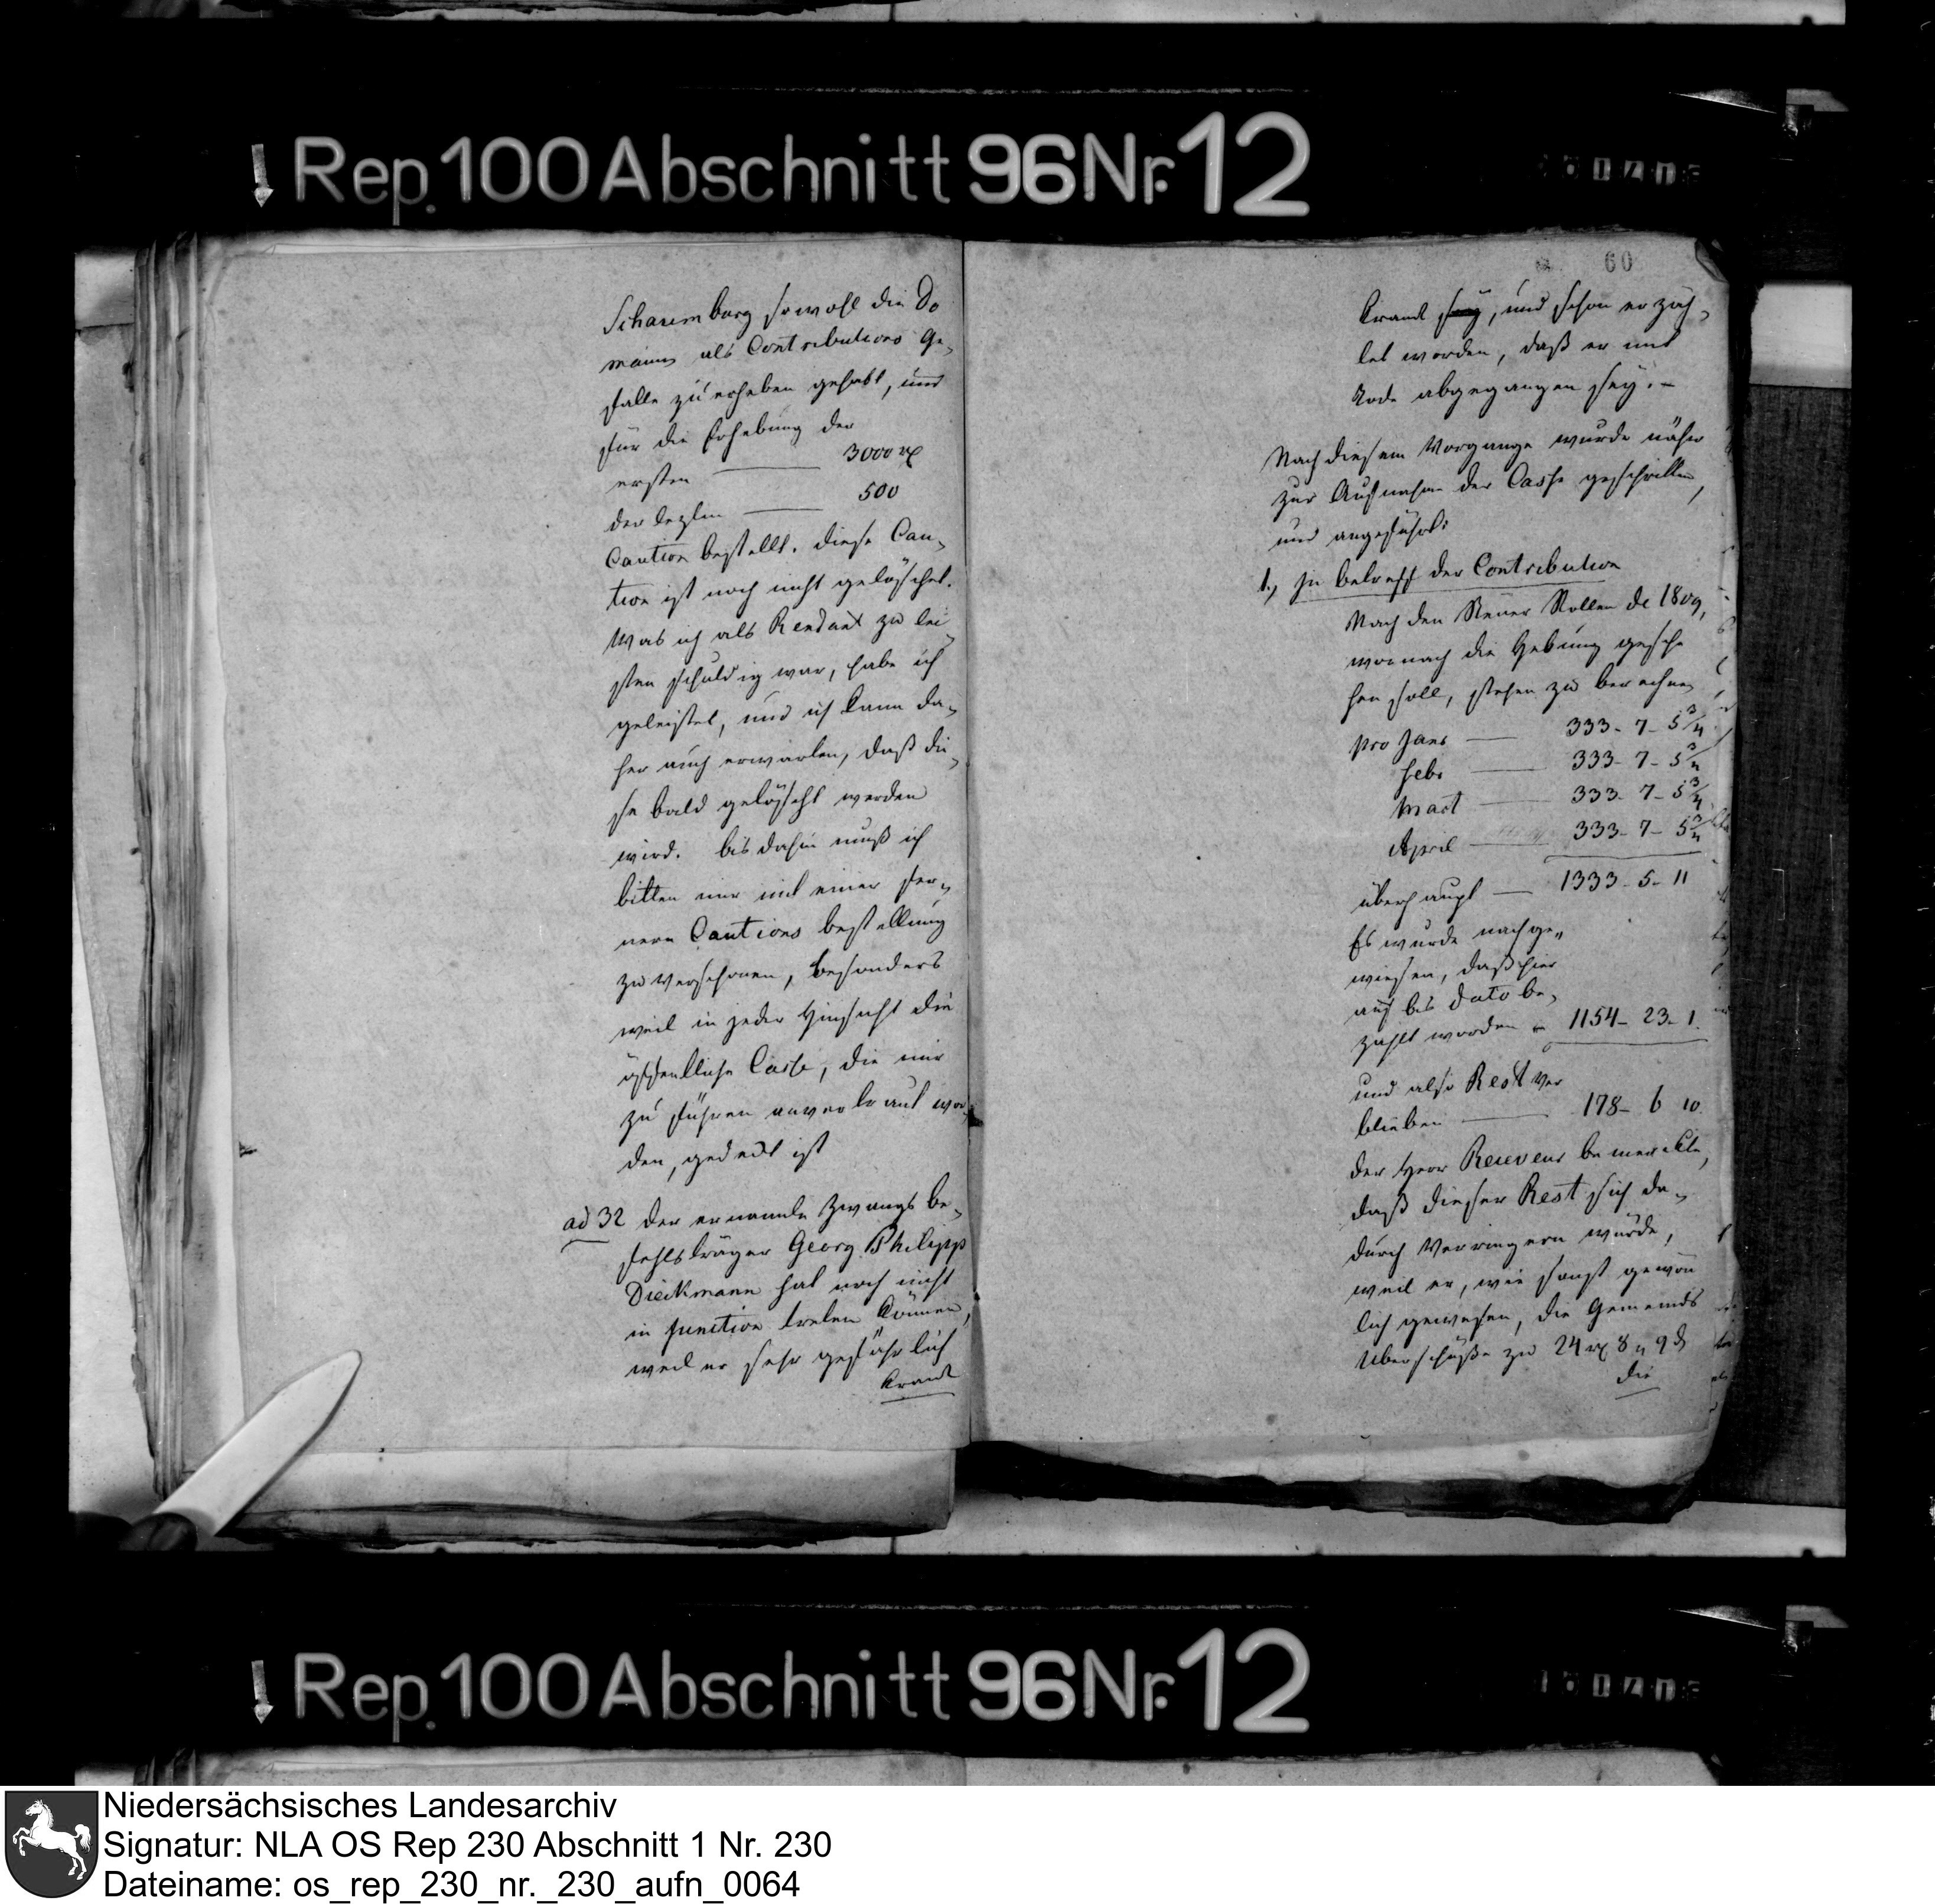 Rep. 100 Abschnitt 96 Nr. 12
Scharemberg sowohl die Do
mainen als Contributions Ge-
fälle zu erheben gehabt, und
für die Erhebung der
ersten — 3000 rℓ
der lezten — 500
Caution bestellt. Diese Cau-
tion ist noch nicht gelöschet.
Was ich als Rendant zu lei
sten schuldig war, habe ich
geleistet, und ich kann da-
her auch erwarten, daß die-
se bald gelöscht werden
wird. bis dahin muß ich
bitten mir mit einer fer-
nern Cautions bestellung
zu verschonen, besonders
weil in jeder Hinsicht die
öffentliche Casse, die mir
zu führen anvertraut wor
den, gedeckt ist
ad 32 Der ernannte Zwangs be-
fehlsträger Georg Philipp
Dieckmann hat noch nicht
in function treten können,
weil er sehr gefährlich
krank
60
krank sey, und schon erzäh-
let worden, daß er mit
Tode abgegangen sey. –
Nach diesem Vorgange wurde näher
zur Aufnahme der Casse geschritten,
und angeführt:
1., In betreff der Contribution
Nach den Steuer Rollen de 1809,
wornach die Hebung gesche
hen soll, stehen zu berechnen
pro Janr — 333 - 7 - 5 3/4
Febr — 333 - 7 - 5 3/4
Mart — 333 - 7 - 5 3/4
April — 333 - 7 - 5 3/4
überhaupt — 1333 - 5 - 11
Es wurde nachge-
wiesen, daß hier
auf bis dato be-
zahlt worden — 1154 - 23 - 1.
und also Rest ver
blieben — 178 - 6 10.
Der Herr Receveur bemerckte,
daß dieser Rest sich da-
durch verringern würde,
weil er, wie sonst gewön
lich gewesen, die Gemeinds
Überschüße zu 24 rℓ 8 g 9 d
die
Rep. 100 Abschnitt 96 Nr. 12
Niedersächsisches Landesarchiv
Signatur: NLA OS Rep 230 Abschnitt 1 Nr. 230
Dateiname: os_rep_230_nr._230_aufn_0064